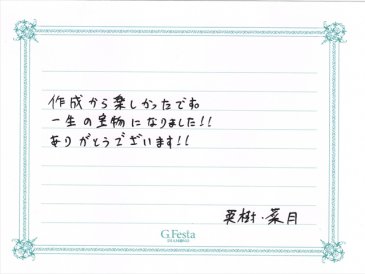 作成から楽しかったです。
一生の宝物になりました!!
ありがとうございます!!
英樹・菜月
G.Festa
DIAMOND